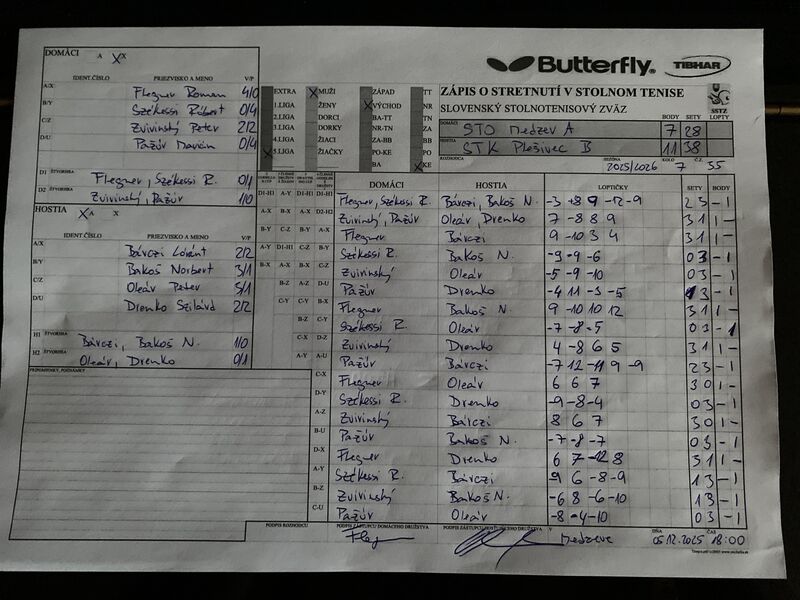 DOMÁCI A X X
Butterfly®
TIBHAR
IDENT.ČÍSLO PRIEZVISKO A MENO V/P
A/X Flegner Roman 4/0
B/Y Székessi Róbert 0/4
C/Z Zvivinský Peter 2/2
D/U Pažúr Marián 0/4
D1 ŠTVORHRA Flegner, Székessi R. 0/1
D2 ŠTVORHRA Zvivinský, Pažúr 1/0
HOSTIA X A X
IDENT.ČÍSLO PRIEZVISKO A MENO V/P
A/X Bárczi Lóránt 2/2
B/Y Bakoš Norbert 3/1
C/Z Oleár Peter
D/U Drenko Szilárd 2/2
H1 ŠTVORHRA Bárczi, Bakoš N. 1/0
H2 ŠTVORHRA Oleár, Drenko 0/1
PRIPOMIENKY, POZNÁMKY
EXTRA X MUŽI ZÁPAD TT
1.LIGA ŽENY X VÝCHOD NR
2.LIGA DORCI BA-TT TN
3.LIGA DORKY NR-TN ZA
4.LIGA ŽIACI ZA-BB BB
X 5.LIGA ŽIAČKY PO-KE PO
BA X KE
ZÁPIS O STRETNUTÍ V STOLNOM TENISE
SLOVENSKÝ STOLNOTENISOVÝ ZVÄZ
SSTZ
BODY SETY LOPTY
DOMÁCI STO Medzev A 7 28
HOSTIA STK Plešivec B 11 38
ROZHODCA SEZÓNA 2025/2026 KOLO 7 Č.Z. 55
DOMÁCI HOSTIA LOPTIČKY SETY BODY
D1-H1 A-Y D1-H1 D1-H1 Flegner, Székessi R. Bárczi, Bakoš N. -3 +8 9 -12 -9 2 3 - 1
A-X B-X A-X D2-H2 Zvivinský, Pažúr Oleár, Drenko 7 -8 8 9 3 1 1 -
B-Y C-Z B-Y A-X Flegner Bárczi 9 -10 3 4 3 1 1 -
A-Y D1-H1 C-Z B-Y Székessi R. Bakoš N. -9 -9 -6 0 3 - 1
B-X A-X B-X C-Z Zvivinský Oleár -5 -9 -10 0 3 - 1
B-Z A-Z D-U Pažúr Drenko -4 11 -3 -5 1 3 - 1
C-Y B-Y C-Y Flegner Bakoš N. 9 -10 10 12 3 1 1 -
B-Z C-Y Székessi R. Oleár -7 -8 -5 0 3 - 1
C-X D-Z Zvivinský Drenko 4 -8 6 5 3 1 1 -
A-Y A-U Pažúr Bárczi -7 12 -11 9 -9 2 3 - 1
C-X Flegner Oleár 6 6 7 3 0 1 -
D-Y Székessi R. Drenko -9 -8 -4 0 3 - 1
A-Z Zvivinský Bárczi 8 6 7 3 0 1 -
B-U Pažúr Bakoš N. -7 -8 -7 0 3 - 1
D-X Flegner Drenko 6 7 -12 8 3 1 1 -
A-Y Székessi R. Bárczi -9 6 -8 -9 1 3 - 1
B-Z Zvivinský Bakoš N. -6 8 -6 -10 1 3 - 1
C-U Pažúr Oleár -8 -4 -10 0 3 - 1
PODPIS ROZHODCU PODPIS ZÁSTUPCU DOMÁCEHO DRUŽSTVA V Medzeve DŇA 05.12.2025 ČAS 18:00